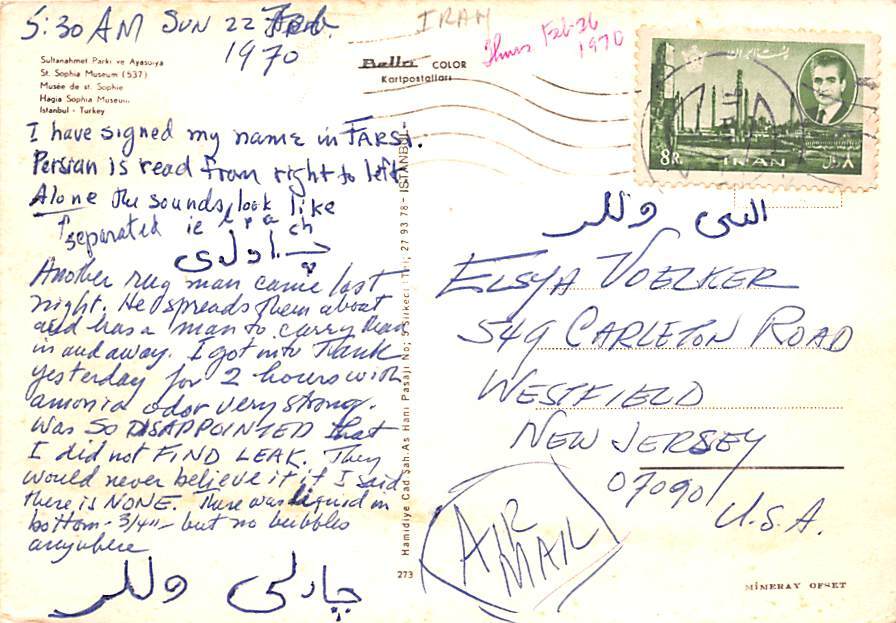 5:30 AM SUN 22 Feb.
1970
IRAN
Thurs Feb 26
1970
Sultanahmet Parkı ve Ayasofya
St. Sophia Museum (537)
Musée de st. Sophie
Hagia Sophia Museum
Istanbul - Turkey
COLOR
Kartpostalları
پست ایران
8R.
IRAN
۸ ریال
I have signed my name in FARSI.
Persian is read from right to left
Alone the sounds look like
↑separated ie l r a ch
چارلی
Another rug man came last
night. He spreads them about
and has a man to carry them
in and away. I got into Tank
yesterday for 2 hours with
amonia odor very strong.
Was SO DISAPPOINTED that
I did not FIND LEAK. They
would never believe it if I said
there is NONE. There was liquid in
bottom - 3/4" - but no bubbles
anywhere
چارلی وللر
Hamidiye Cad. Şah-As Hanı Pasajı No: Sirkeci Tel: 27 93 78 - ISTANBUL
273
السی وللر
ELSYA VOELKER
549 CARLETON ROAD
WESTFIELD
NEW JERSEY
07090
U.S.A.
AIR
MAIL
MİMERAY OFSET